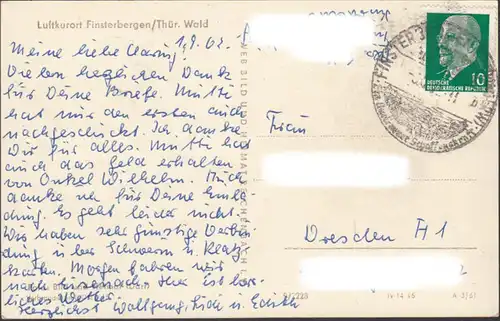 Luftkurort Finsterbergen/Thür. Wald
1.9.62.
Meine liebe
Vielen herzlichen Dank
für Deine Briefe. Mutti
hat mir den ersten auch
nachgeschickt. Ich danke
Dir für alles. Mutti hat
auch das Geld erhalten
von Onkel Wilhelm. Auch
danke wir für Deine Einla-
dung. Es geht leider nicht.
Wir haben sehr günstige Verbin-
dung über Schwerin u. Platz-
karten. Morgen fahren wir
nach Eisenach. Hier ist herr-
liches Wetter.
Herzlichst Wolfgang, u. Edith
VEB BILD UND HEIMAT REICHENBACH I. V.
Frau
Dresden A 1
10
DEUTSCHE
DEMOKRATISCHE REPUBLIK
IV-14-45
A 3/61